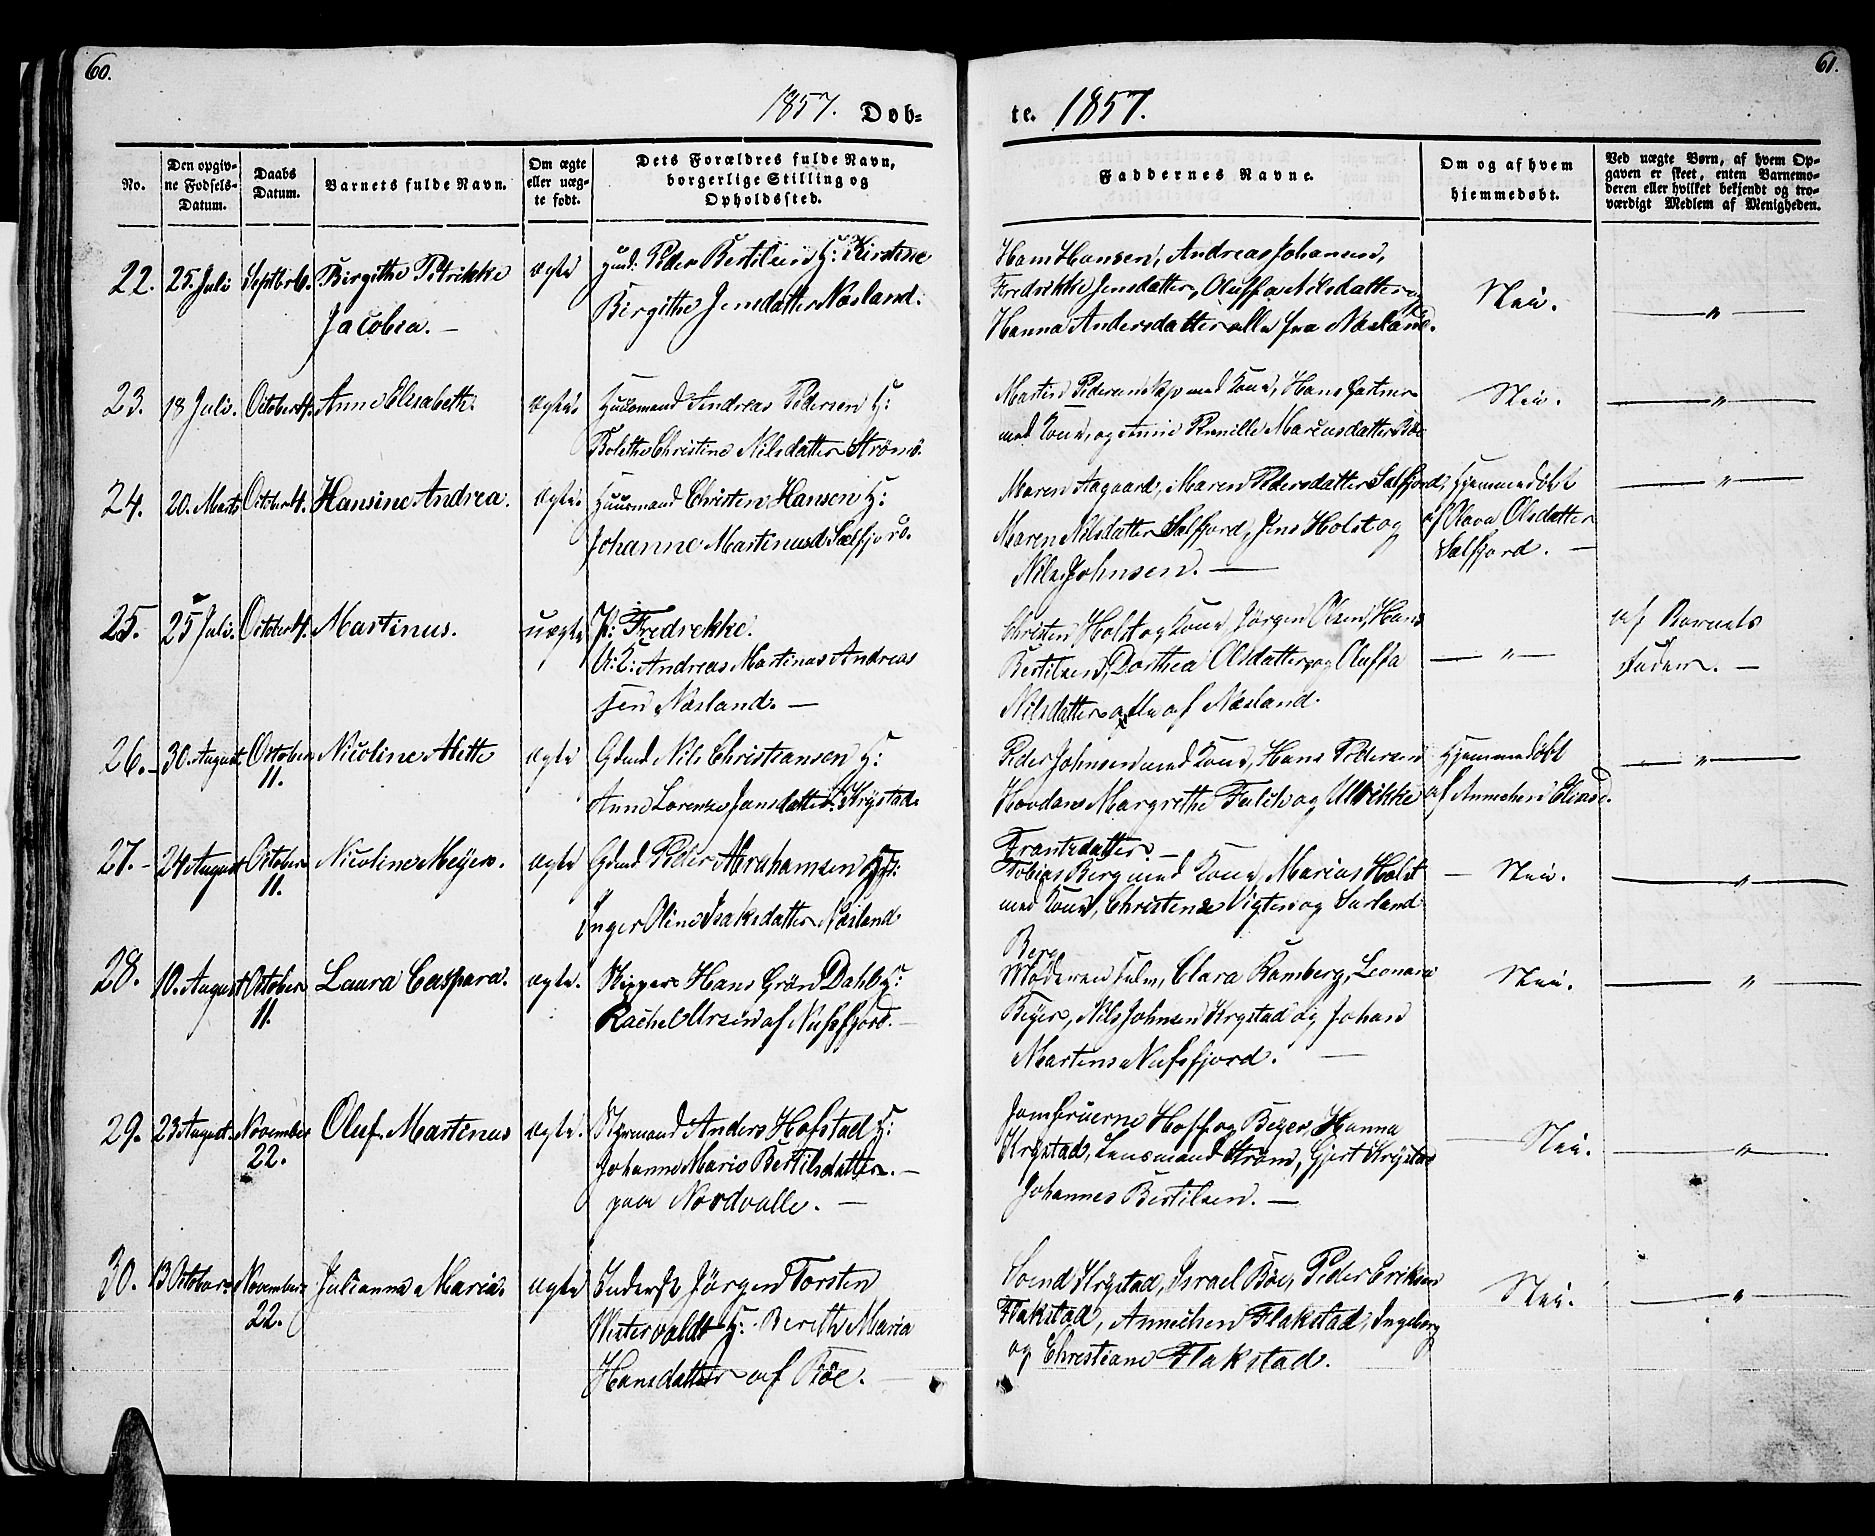 60.
61.
1857. Døb-
te. 1857.
No.
Den opgiv-
ne Fødsels-
Datum.
Daabs
Datum.
Barnets fulde Navn.
Om ægte
eller uæg-
te født.
Dets Forældres fulde Navn,
borgerlige Stilling og
Opholdssted.
Faddernes Navne.
Om og af hvem
hjemmedøbt.
Ved uægte Børn, af hvem Op-
gaven er skeet, enten Barnemo-
deren eller hvilket bekjendt og tro-
værdigt Medlem af Menigheden.
22. 25. Juli Septbr 6. Birgithe Petrikke
Jacobea. —
ægte
Huusmd. Peder Bertilsen H: Kirstine
Birgithe Jensdatter Næsland.
Hans Hansen, Andreas Johansen,
Fredrikke Jensdatter, Oluffa Nilsdatter og
Hanna Andersdatter alle fra Næsland.
Nei.
— " —
23. 18 Juli. October 4. Anne Elisabeth.
ægte.
Huusmand Andreas Pedersen H:
Bolethe Christine Nilsdatter Strømø.
Martin Pedersen med Kone, Hans
med Kone, og Anne Pernille Marcusdatter Böe
Nei.
— " —
24. 20. Marts October 4. Hansine Andrea.
ægte.
Huusmand Christen Hansen H:
Johanne Martinusd. Selfjord.
Maren Aagaard, Maren Pedersdatter Selfjord,
Maren Nilsdatter Selfjord, Jens Holst og
Nils Johnsen. —
Hjemmedöbt
af Olava Olsdatter
Selfjord. —
— " —
25. 25 Juli. October 4. Martinus.
uægte
P: Fredrekke.
U: K: Andreas Martinus Andreas
sen Næsland. —
Christen Holst og Kone, Jörgen Olsen, Hans
Bertilsen, Dorthea Olsdatter og Oluffa
Nilsdatter alle af Næsland.
— " —
af Barnets
Fader. —
26. 30. August October
11.
Nicoline Alette
ægte
Gdmd Nils Christiansen H:
Anne Lorenze Jansdatter Krystad.
Peder Johnsen med Kone, Hans Pedersen
Margrethe Falch og Ulrikke
Frantzdatter. —
Hjemmedöbt
af Annichen
— " —
27. 24 August October
11.
Nicoline Meyer.
ægte
Gdmd Peder Abrahamsen H:
Inger Oline Isaksdatter Næsland
Tobias Berg med Kone, Marius Holst
med Kone, Christense Vigten og
Berg
— Nei.
— " —
28. 10. August October
11.
Laura Caspara.
ægte.
Skipper Hans Grön Dahl H:
Rachel Ursin af Nufsfjord. —
Moderen selv, Clara Ramberg, Leonara
Beyer, Nils Johnsen Krystad og Johan
Martens Nufsfjord. —
Nei.
— " —
29. 23 August. November
22.
Oluf Martinus
ægte.
Styrmand Anders Hofstad H:
Johanne Marie Bertilsdatter. —
paa Nordvalle. —
Jomfruerne Hoff og Beyer, Hanna
Krystad, Lensmand Ström, Gjert Krystad
Johannes Bertilsen. —
— Nei.
— " —
30. 13 October November
22.
Julianna Maria.
ægte
Inderst Jörgen Torsten
Westervaldt H: Berith Maria
Hansdatter af Böe. —
Svend Krystad, Israel Böe, Peder Eriksen
Flakstad, Annichen Flakstad, Ingeborg
og Christiane Flakstad.
Nei.
— " —